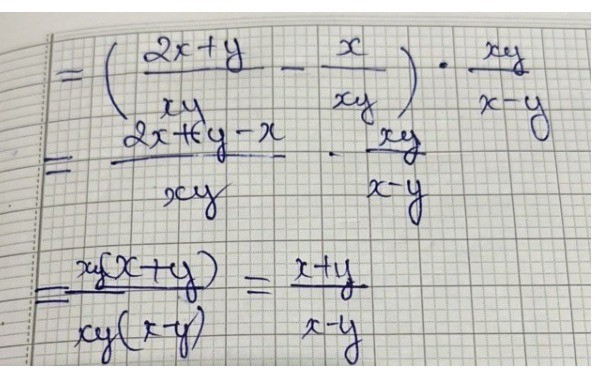 = ( (2x+y)/(xy) - x/(xy) ) · (xy)/(x-y)
= (2x+y-x)/(xy) · (xy)/(x-y)
= (xy(x+y))/(xy(x-y)) = (x+y)/(x-y)